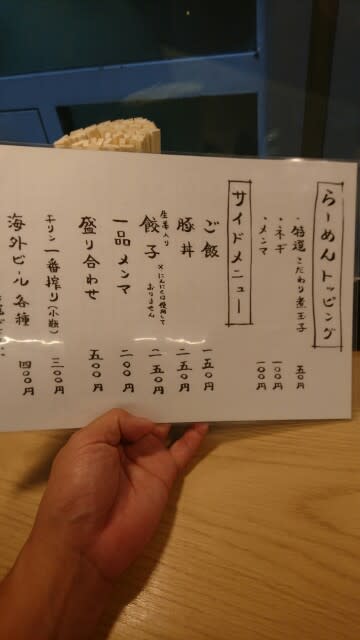 らーめんトッピング
・特選こだわり煮玉子 五〇円
・ネギ 一〇〇円
・メンマ 一〇〇円
サイドメニュー
ご飯 一五〇円
豚丼 二五〇円
生姜入り
餃子 二五〇円
×にんにくは使用して
おりません
一品メンマ 二〇〇円
盛り合わせ 五〇〇円
キリン一番搾り(小瓶) 三〇〇円
海外ビール各種 四〇〇円